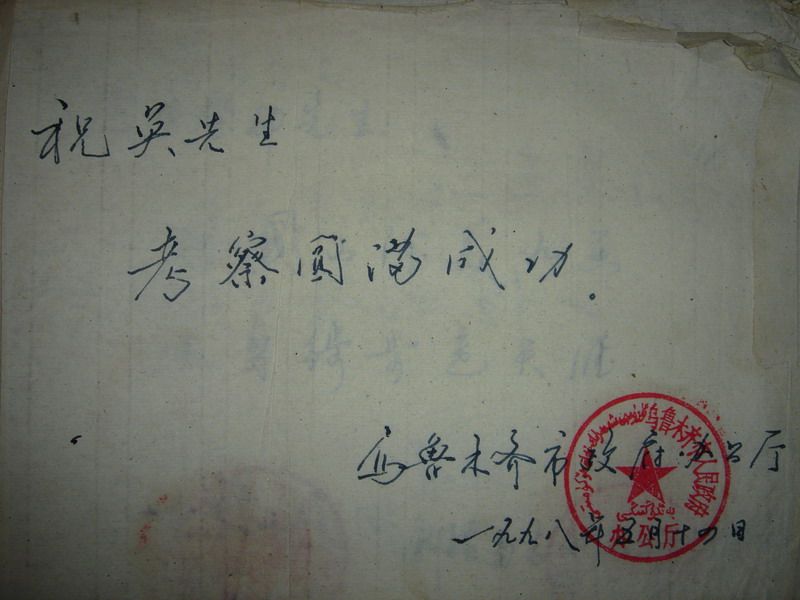 祝吴先生
考察圆满成功。
乌鲁木齐市政府办公厅
一九九八年五月十四日
乌鲁木齐市人民政府
办公厅